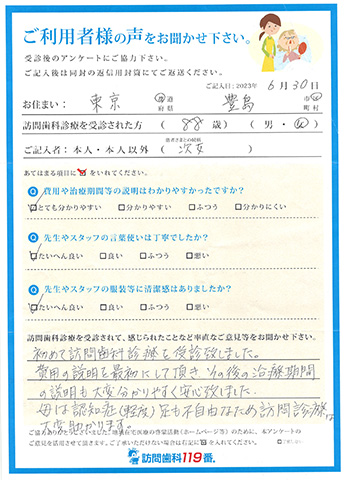 ご利用者様の声をお聞かせ下さい。
受診後のアンケートにご協力下さい。
ご記入後は同封の返信用封筒にてご返送ください。
ご記入日:2023年 6月30日
お住まい: 東京 都道府県 豊島 市区町村
訪問歯科診療を受診された方 (88 歳) (男・女)
ご記入者:本人・本人以外 患者さまとの続柄 (次女)
あてはまる項目に✓をいれてください。
Q 費用や治療期間等の説明はわかりやすかったですか?
☑とても分かりやすい □分かりやすい □ふつう □分かりにくい
Q 先生やスタッフの言葉使いは丁寧でしたか?
☑たいへん良い □良い □ふつう □悪い
Q 先生やスタッフの服装等に清潔感はありましたか?
☑たいへん良い □良い □ふつう □悪い
訪問歯科診療を受診されて、感じられたことなど率直なご意見等をお聞かせ下さい。
初めて訪問歯科診療を受診致しました。
費用の説明を最初にして頂き、その後の治療期間
の説明も大変分かりやすく安心致しました。
母は認知症(軽度)足も不自由なため訪問診療は
大変助かります。
ご協力ありがとうございました。地域在宅医療の啓蒙活動(ホームページ等)のために、本アンケートの
ご意見を活用させて頂きます。ご了承いただけない場合は右記に✓を入れてください。
訪問歯科119番。